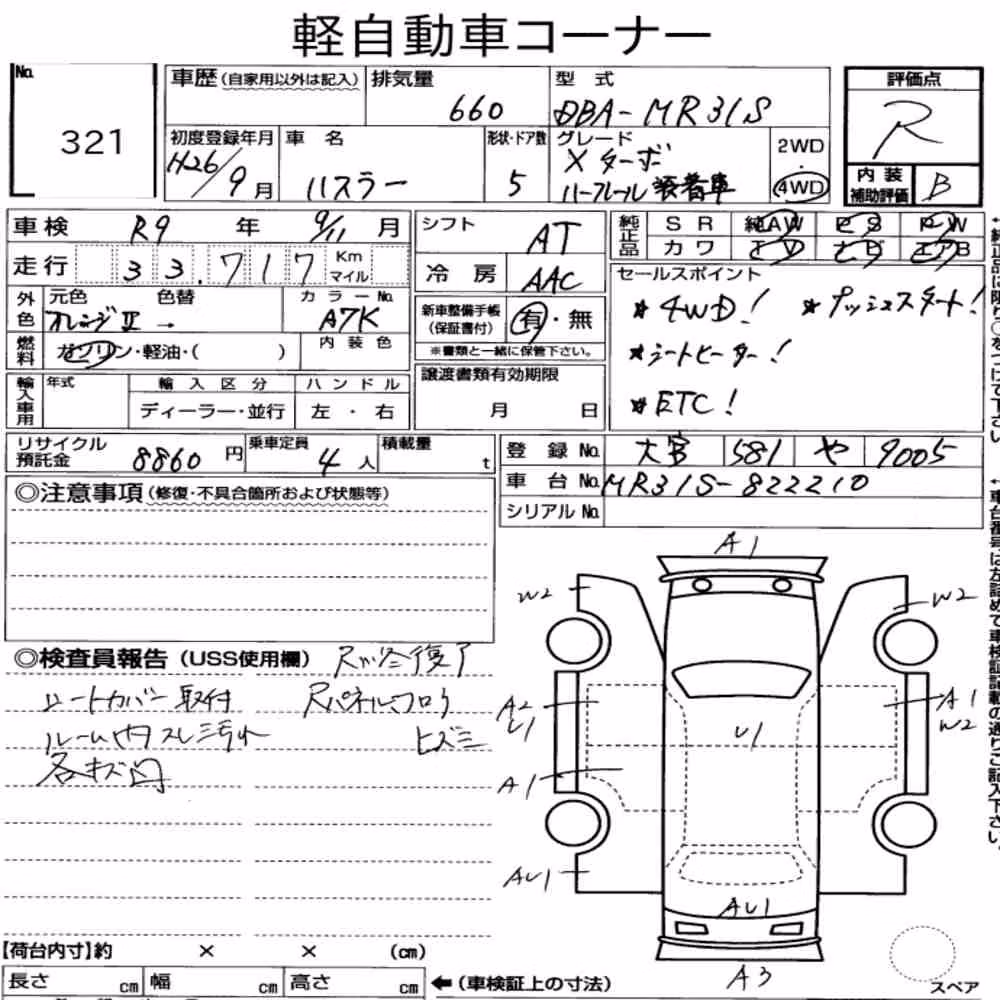 軽自動車コーナー
No. 321
車歴(自家用以外は記入)
排気量 660
型式 DBA-MR31S
評価点 R
初度登録年月 H26/9月
車名 ハスラー
形状・ドア数 5
グレード Xターボ
ルーフレール装着車
2WD
・
4WD
内装補助評価 B
車検 R9年 9/11月
走行 33,717 Km マイル
外色 元色 色替 カラーNo.
オレンジⅡ → A7K
燃料 ガソリン・軽油・( ) 内装色
輸入車用 年式 輸入区分 ハンドル
ディーラー・並行 左・右
シフト AT
冷房 AAC
新車整備手帳(保証書付) 有・無
※書類と一緒に保管下さい。
譲渡書類有効期限
月 日
純正品 SR 純AW PS PW
カワ TV ナビ エアB
セールスポイント
*4WD! *プッシュスタート!
*シートヒーター!
*ETC!
リサイクル預託金 8860円
乗車定員 4人
積載量 t
登録No. 大宮 581 や 9005
車台No. MR31S-822210
シリアルNo.
◎注意事項(修復・不具合箇所および状態等)
◎検査員報告(USS使用欄)
シートカバー取付
Rパネル、フロア
ルーム内スレ汚れ
ヒズミ
各キズ凹
A1
W2
W2
A2
U1
A1
W2
U1
A1
AU1
AU1
A3
【荷台内寸】約 × × (cm)
長さ cm 幅 cm 高さ cm ←(車検証上の寸法)
スペア
←純正品に限り○をつけて下さい
←車台番号は左詰めで車検証記載の通りご記入下さい。